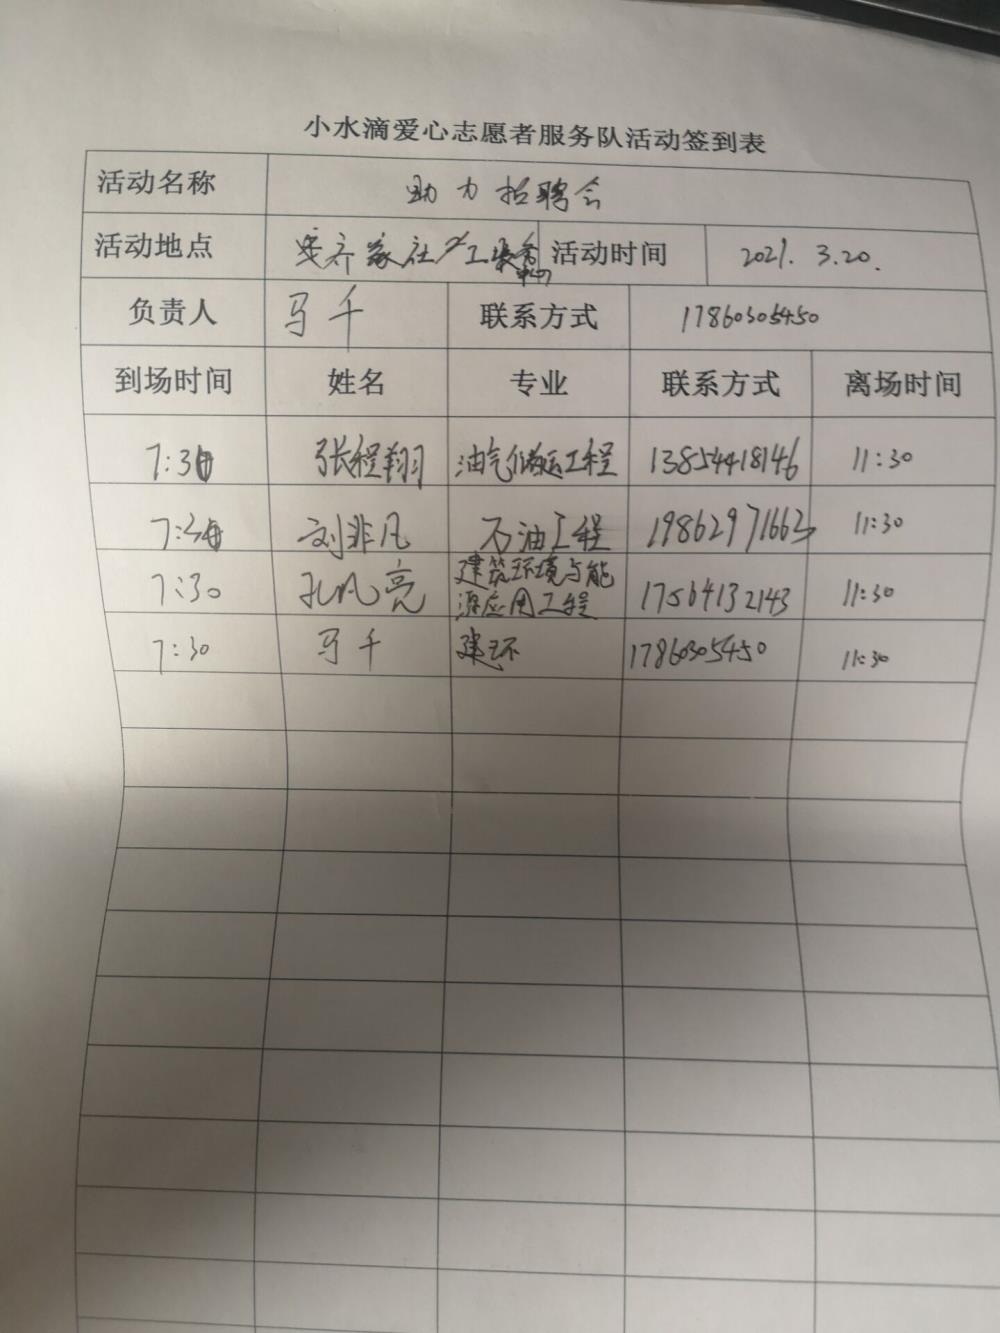 小水滴爱心志愿者服务队活动签到表
活动名称 助力招聘会
活动地点 活动时间 2021. 3.20.
负责人 马千 联系方式 17860305450
到场时间 姓名 专业 联系方式 离场时间
7:30 张程翔 油气储运工程 13854418146 11:30
7:30 刘非凡 石油工程 19862971663 11:30
7:30 孔凡亮 建筑环境与能 17564132143 11:30
源应用工程
7:30 马千 建环 17860305450 11:30